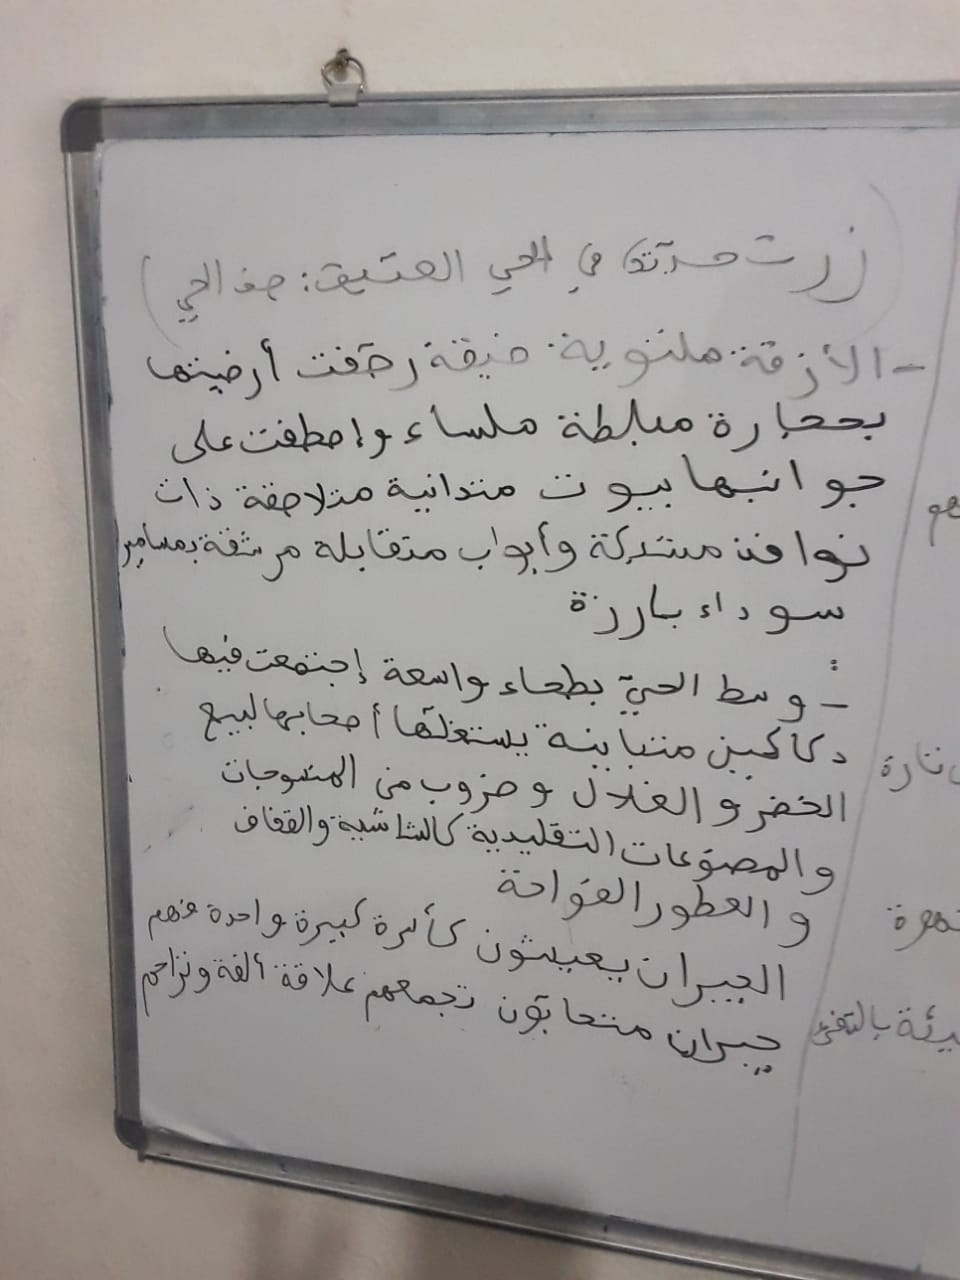 (زرت جدتك في الحي العتيق: صف الحي)
- الأزقة ملتوية ضيقة رصفت أرضيتها
بحجارة مبلطة ملساء وإصطفت على
جوانبها بيوت متدانية متلاصقة ذات
نوافذ مشبكة وأبواب متقابلة مرشقة بمسامير
سوداء بارزة
- وسط الحيّ بطحاء واسعة إجتمعت فيها
دكاكين متباينة يستغلّها أصحابها لبيع
الخضر و الغلال و ضروب من المنسوجات
والمصوغات التقليدية كالشاشية والقفاف
و العطور الفوّاحة
الجيران يعيشون كأسرة كبيرة واحدة فهم
جيران متحابّون تجمعهم علاقة ألفة وتراحم
هم
تارة